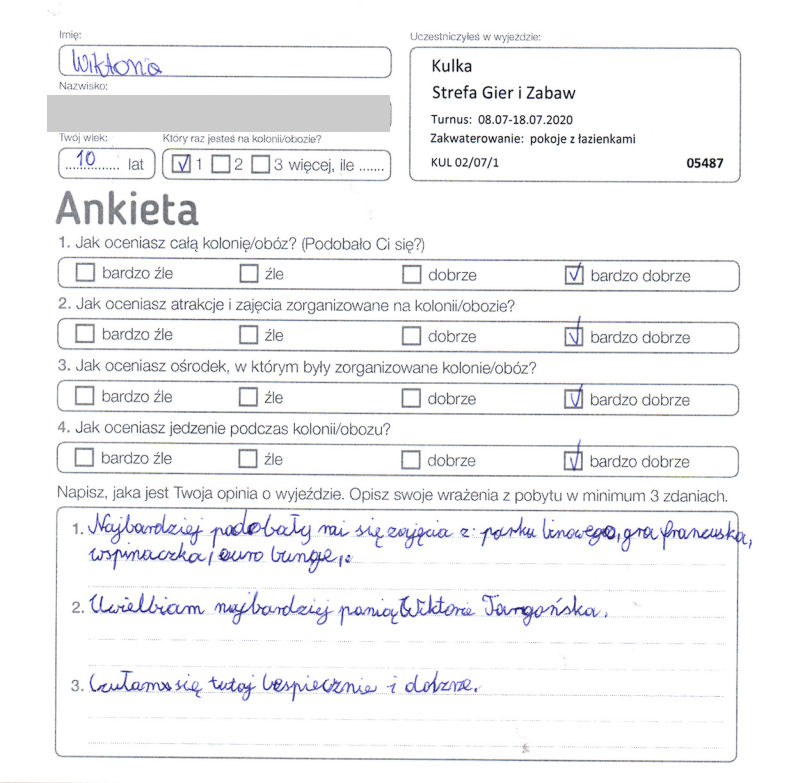 Imię:
Wiktoria
Nazwisko:
Twój wiek:
10 lat
Który raz jesteś na kolonii/obozie?
1 2 3 więcej, ile .......
Uczestniczyłeś w wyjeździe:
Kulka
Strefa Gier i Zabaw
Turnus: 08.07-18.07.2020
Zakwaterowanie: pokoje z łazienkami
KUL 02/07/1 05487
Ankieta
1. Jak oceniasz całą kolonię/obóz? (Podobało Ci się?)
bardzo źle źle dobrze bardzo dobrze
2. Jak oceniasz atrakcje i zajęcia zorganizowane na kolonii/obozie?
bardzo źle źle dobrze bardzo dobrze
3. Jak oceniasz ośrodek, w którym były zorganizowane kolonie/obóz?
bardzo źle źle dobrze bardzo dobrze
4. Jak oceniasz jedzenie podczas kolonii/obozu?
bardzo źle źle dobrze bardzo dobrze
Napisz, jaka jest Twoja opinia o wyjeździe. Opisz swoje wrażenia z pobytu w minimum 3 zdaniach.
1. Najbardziej podobały mi się zajęcia z: parku linowego, gra francuska,
wspinaczka, euro bunge,.
2. Uwielbiam najbardziej panią Wiktorie Targońska.
3. Czułam się tutaj bespiecznie i dobrze.